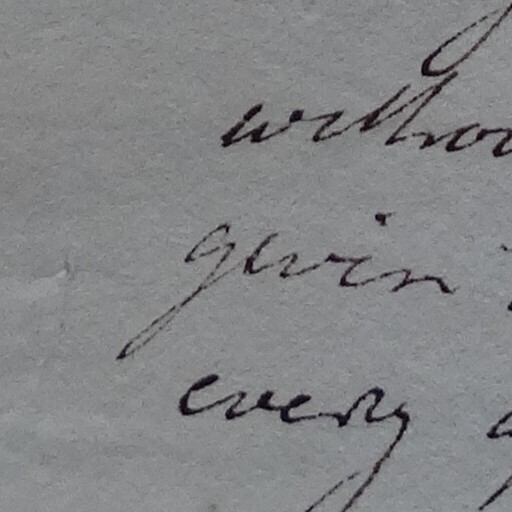 witho
gevin
every